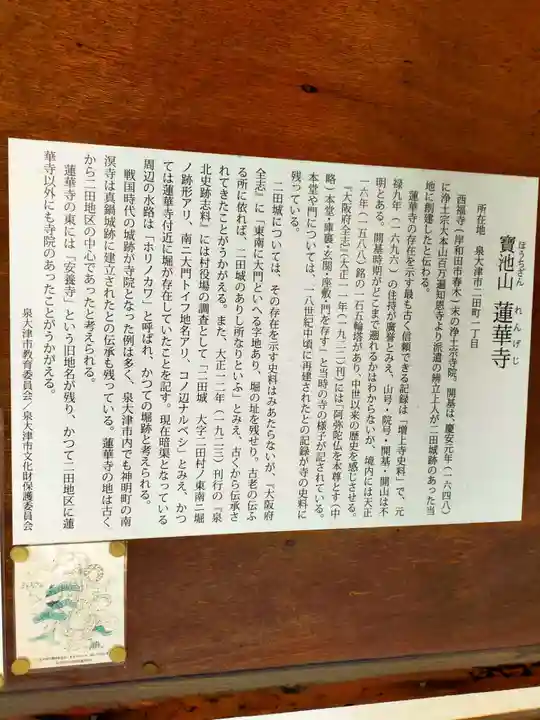 寶池山 蓮華寺
ほうちざん れんげじ
所在地 泉大津市二田町一丁目
西福寺(岸和田市春木)末の浄土宗寺院。開基は、慶安元年(一六四八)
に浄土宗大本山百万遍知恩寺より派遣の辨立上人が二田城跡のあった当
地に創建したと伝わる。
蓮華寺の存在を示す最も古く信頼できる記録は「増上寺史料」で、元
禄九年(一六九六)の住持が廣誉とみえ、山号・院号・開基・開山は不
明とある。開基時期がどこまで遡れるかはわからないが、境内には天正
一六年(一五八八)銘の一石五輪塔があり、中世以来の歴史を感じさせる。
『大阪府全志』(大正一一年(一九二二)刊)には「阿弥陀仏を本尊とす(中
略)本堂・庫裏・玄関・座敷・門を存す」と当時の寺の様子が記されている。
本堂や門については、一八世紀中頃に再建されたとの記録が寺の史料に
残っている。
二田城については、その存在を示す史料はみあたらないが、『大阪府
全志』に「東南に大門といへる字地あり、堀の址を残せり。古老の伝ふ
る所に依れば、二田城のありし所なりといふ」とみえ、古くから伝承さ
れてきたことがうかがえる。また、大正一二年(一九二三)刊行の『泉
北史跡志料』には村役場の調査として「二田城 大字二田村ノ東南ニ堀
ノ跡形アリ、南ニ大門トイフ地名アリ、コノ辺ナルベシ」とみえ、かつ
ては蓮華寺付近に堀が存在していたことを記す。現在暗渠となっている
周辺の水路は「ホリノカワ」と呼ばれ、かつての堀跡と考えられる。
戦国時代の城跡が寺院となった例は多く、泉大津市内でも神明町の南
溟寺は真鍋城跡に建立されたとの伝承も残っている。蓮華寺の地は古く
から二田地区の中心であったと考えられる。
蓮華寺の東には「安養寺」という旧地名が残り、かつて二田地区に蓮
華寺以外にも寺院のあったことがうかがえる。
泉大津市教育委員会/泉大津市文化財保護委員会